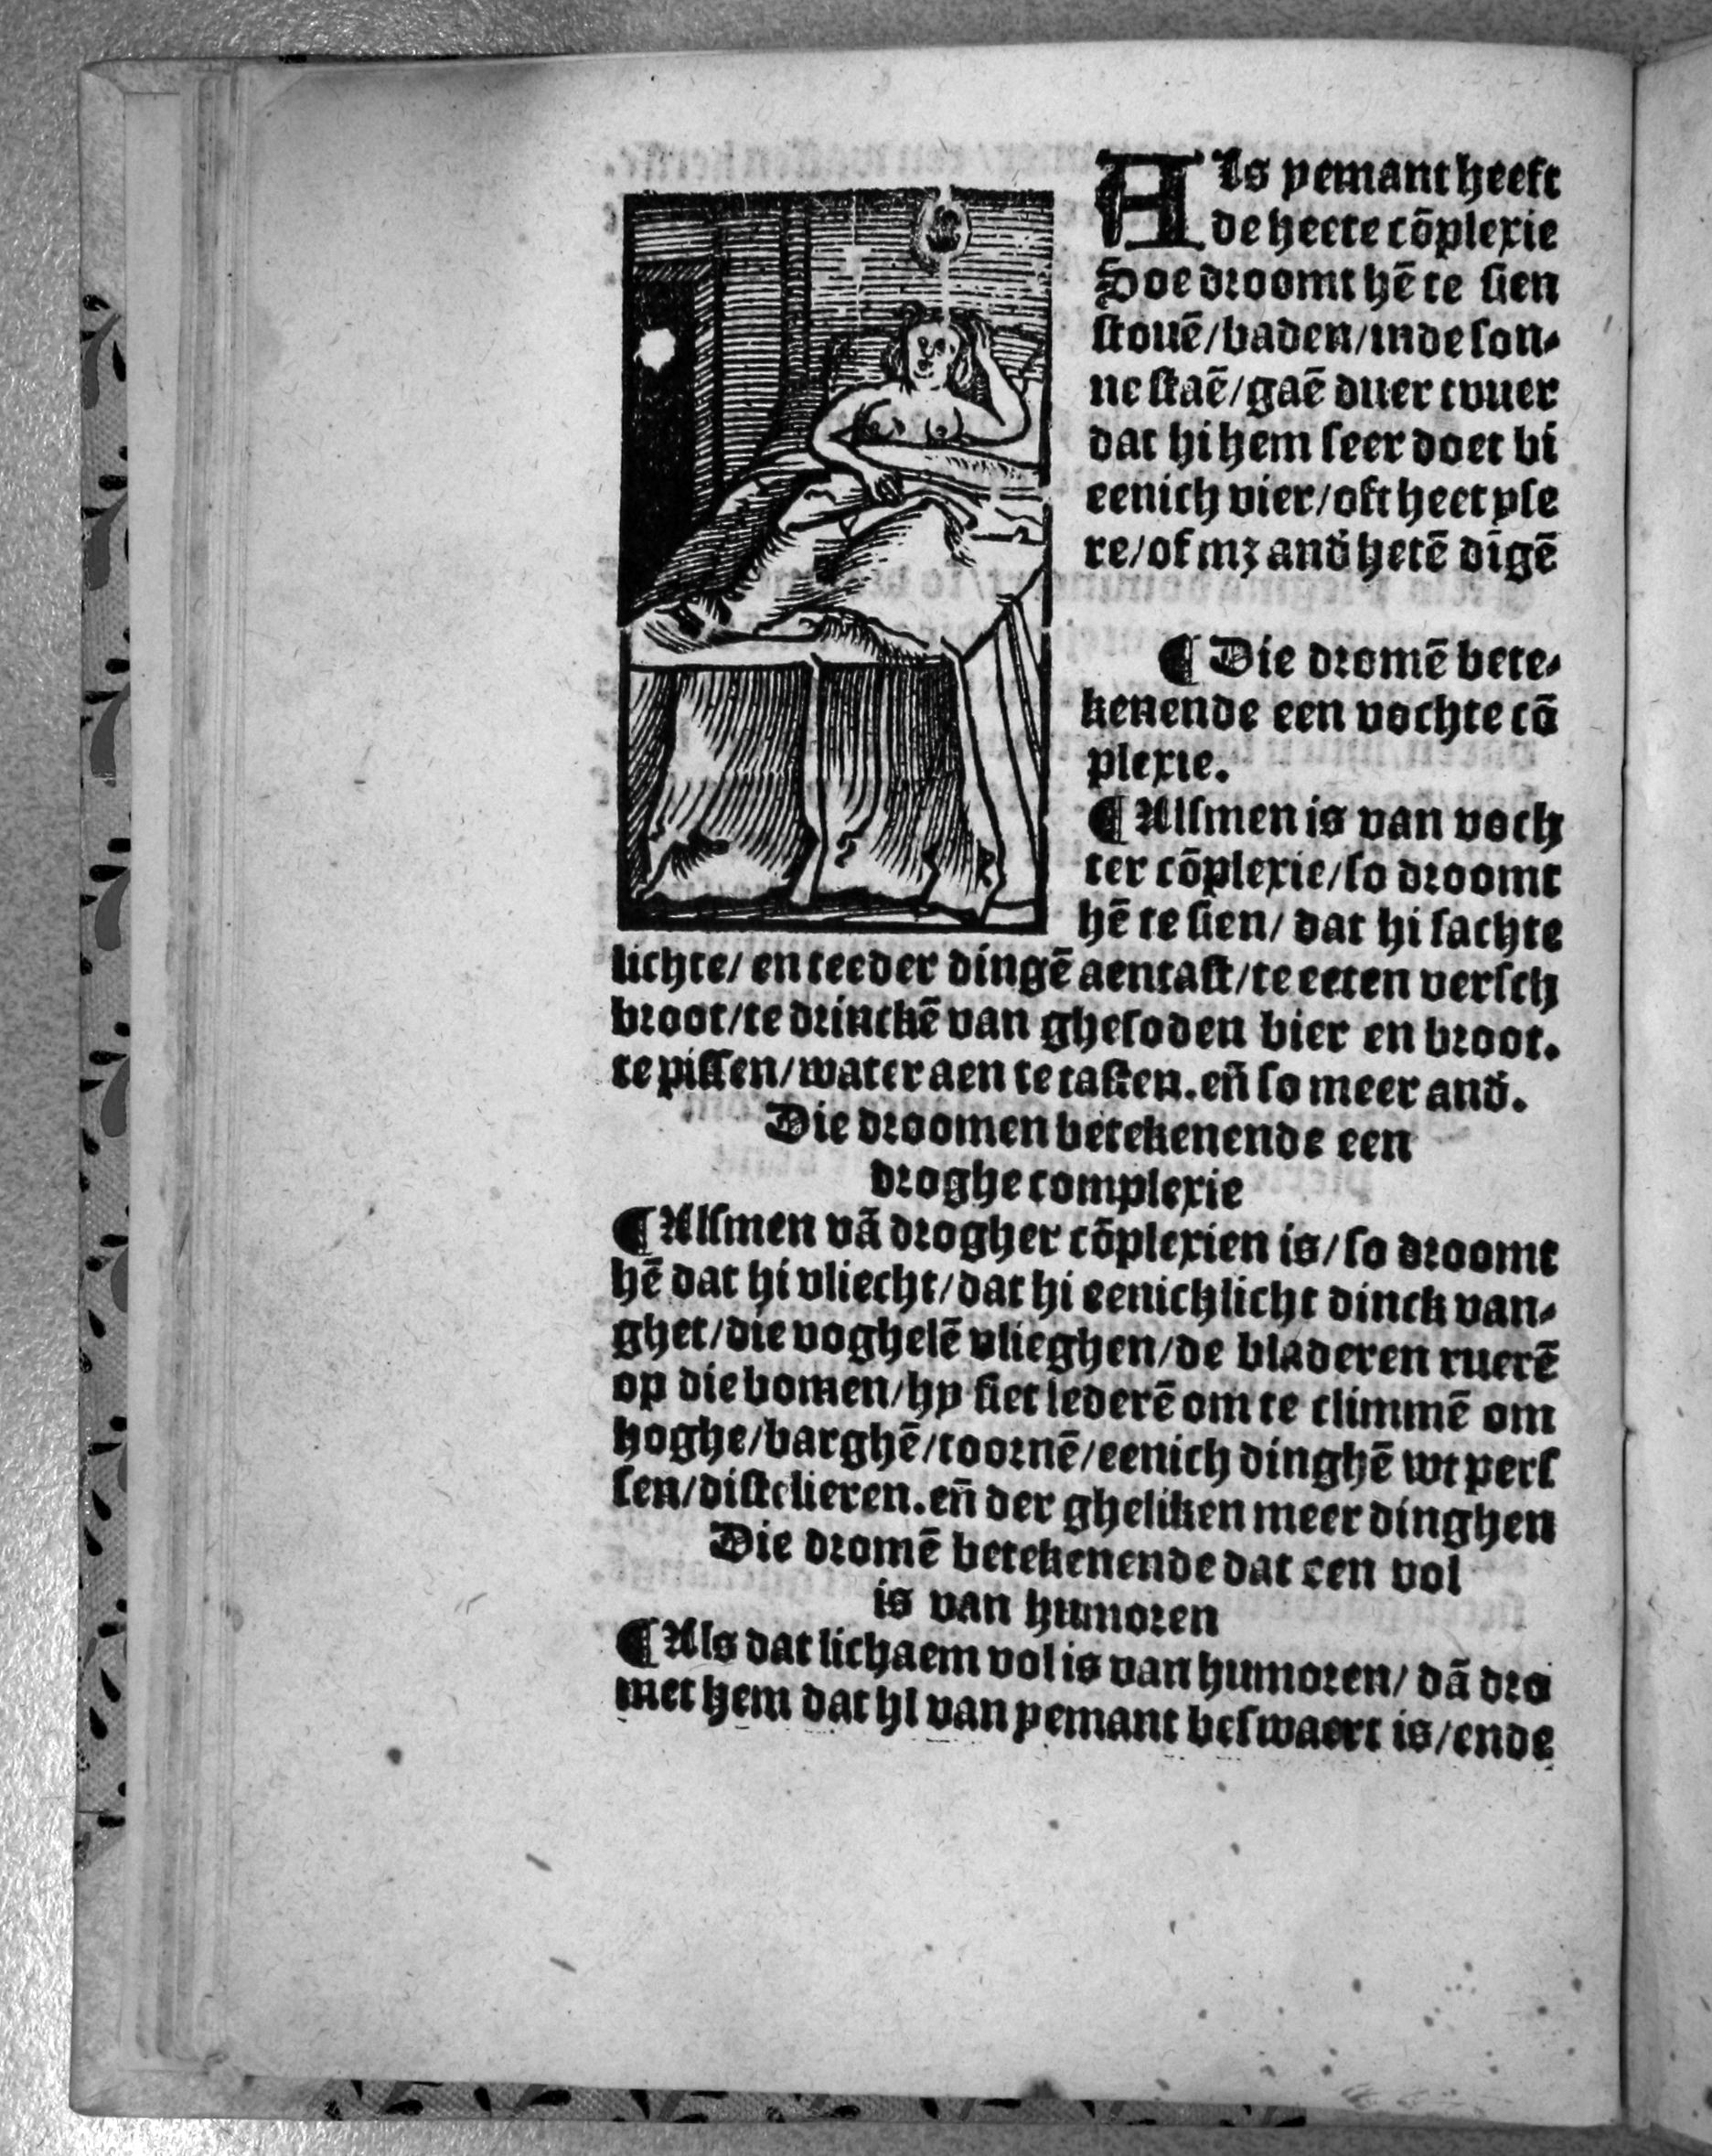 Als yemant heeft
de heete cōplexie
Soe droomt hē te sien
stouē/baden/inde son⸗
ne staē/gaē duer tvuer
dat hi hem seer doet bi
eenich vier/oft heet yse
re/of mꝫ and̄ hetē dīgē
¶ Die dromē bete⸗
kenende een vochte cō
plexie.
¶ Alsmen is van voch
ter cōplexie/so droomt
hē te sien/ dat hi sachte
lichte/ en teeder dingē aentast/te eeten versch
broot/te drinckē van ghesoden bier en broot.
te pissen/water aen te tasten.en̄ so meer and̄.
Die droomen betekenende een
droghe complexie
¶ Alsmen vā drogher cōplexien is/so droomt
hē dat hi vliecht/dat hi eenich licht dinck van⸗
ghet/die voghelē vlieghen/de bladeren ruerē
op die bomen/hy siet lederē om te climmē om
hoghe/barghē/toornē/eenich dinghē wt pers
sen/distelieren.en̄ der gheliken meer dinghen
Die dromē betekenende dat een vol
is van humoren
¶ Als dat lichaem vol is van humoren/ dā dro
met hem dat hi van yemant beswaert is/ende